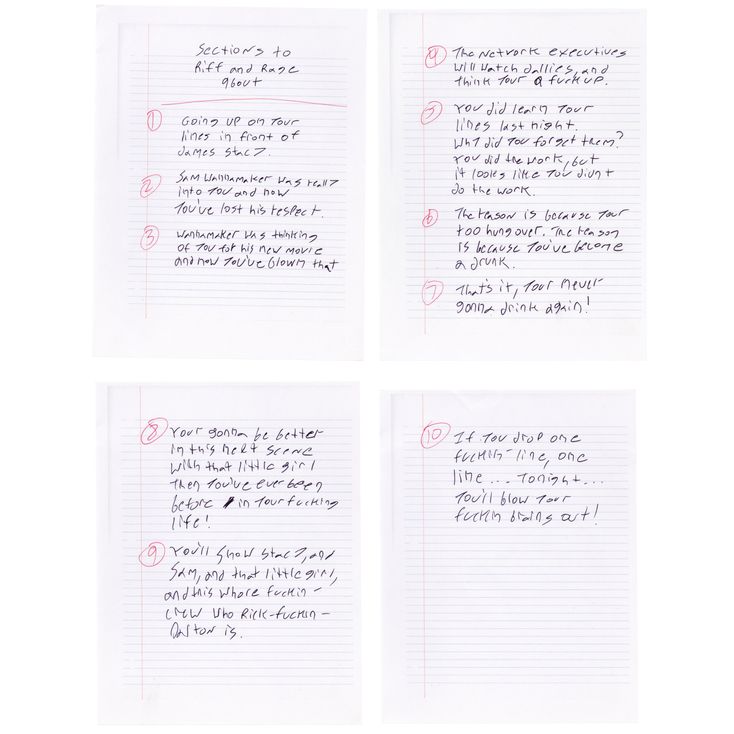 Sections to
Riff and Rage
about
1 Going up on your
lines in front of
James Stacy.
2 Sam Wannamaker was really
into you and now
you've lost his respect.
3 Wannamaker was thinking
of you for his new movie
and now you've blown that
4 The Network executives
will watch dailies, and
think your a fuck up.
5 You did learn your
lines last night.
Why did you forget them?
You did the work, but
it looks like you didn't
do the work.
6 The reason is because your
too hung over. The reason
is because you've become
a drunk.
7 That's it, your never
gonna drink again!
8 Your gonna be better
in this next scene
with that little girl
then you've ever been
before in your fucking
life!
9 You'll show Stacy, and
Sam, and that little girl,
and this whole fuckin-
crew who Rick-fuckin-
Dalton is.
10 If you drop one
fuckin- line, one
line... tonight...
you'll blow your
fuckin brains out!